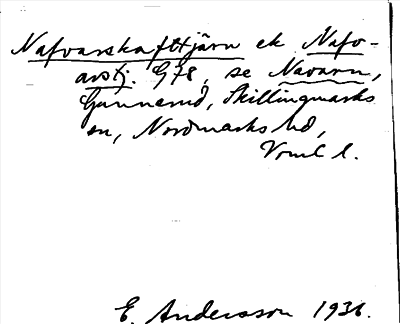 Nafvarskafttjärn ek Nafv-
arstj. G78, se Navarn,
Gunnerud, Skillingmarks
sn, Nordmarks hd,
Vrml l.
E. Andersson 1936.